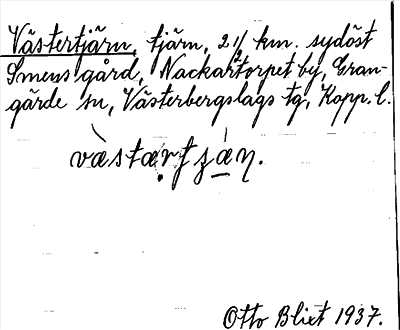 Västertjärn, tjärn, 2 1/2 km. sydöst
Smens gård, Nackartorpet by, Gran-
gärde sn, Västerbergslags tg, Kopp. l.
Otto Blixt 1937.